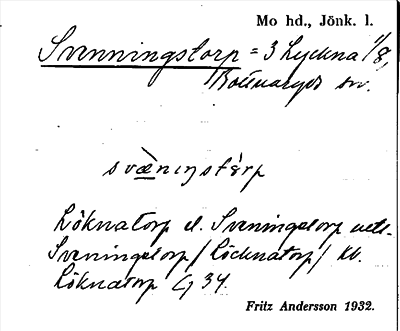 Mo hd., Jönk. l.
Svenningstorp = 3 Lyckna 1/8,
Bottnaryds sn.
svæ̀nıŋstérp
Löknatorp el. Sveningstorp
Sveningstorp / Löcknatorp / kb.
Löknatorp Cg 34.
Fritz Andersson 1932.